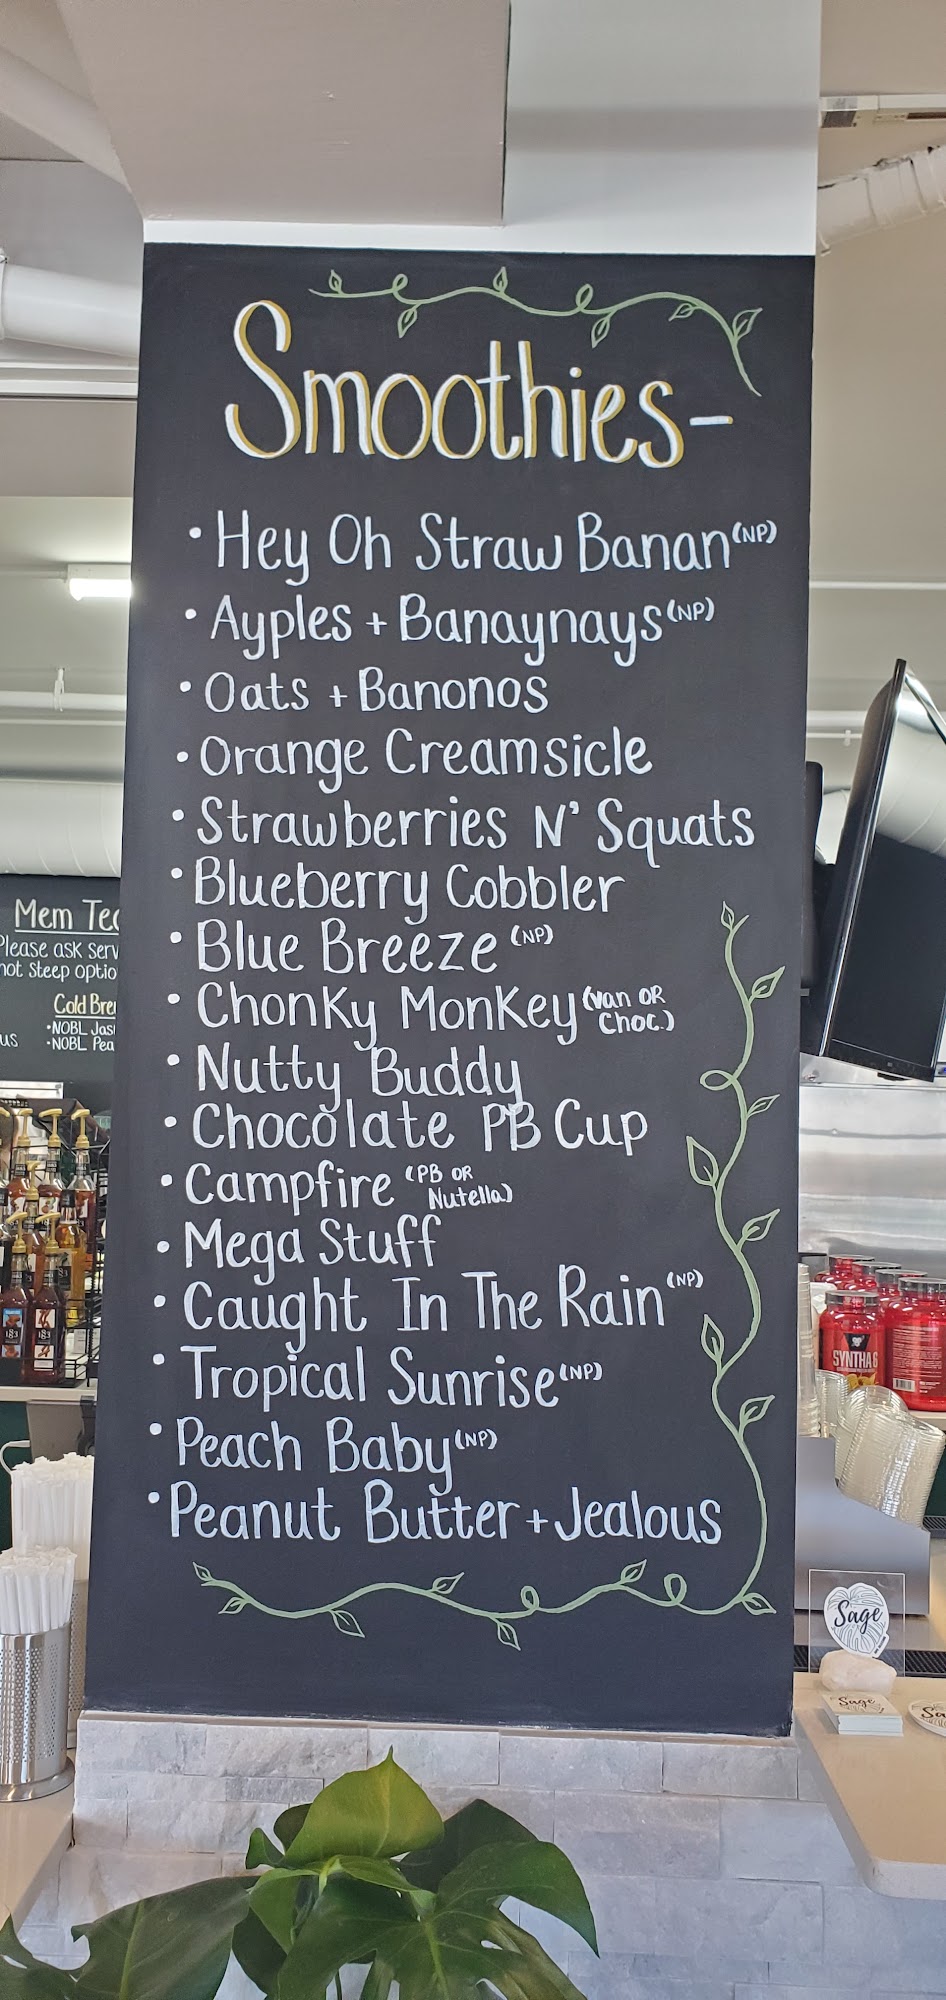 Smoothies-
• Hey Oh Straw Banan (NP)
• Ayples + Banaynays (NP)
• Oats + Banonos
• Orange Creamsicle
• Strawberries N' Squats
• Blueberry Cobbler
• Blue Breeze (NP)
• Chonky Monkey (Van OR
Choc.)
• Nutty Buddy
• Chocolate PB Cup
• Campfire (PB OR
Nutella)
• Mega Stuff
• Caught In The Rain (NP)
• Tropical Sunrise (NP)
• Peach Baby (NP)
• Peanut Butter + Jealous
Mem
Please ask
steep
Cold
• NOBL
• NOBL
SYNTHA6
Sage
Sage